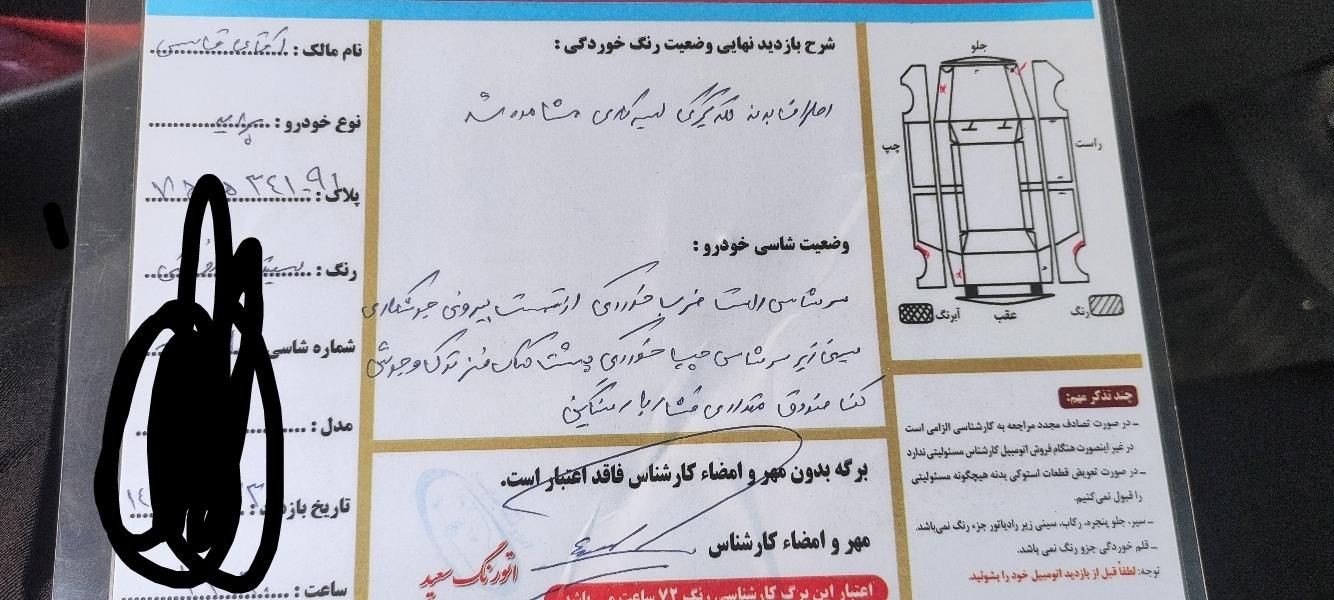 نام مالک :
نوع خودرو :
پلاک :
رنگ :
شماره شاسی
مدل :
تاریخ بازدید :
ساعت :
شرح بازدید نهایی وضعیت رنگ خوردگی :
اطراف بدنه لکه گیری لیسه کاری مشاهده شد
وضعیت شاسی خودرو :
سرشاسی راست ضربه خوردگی از قسمت بیرونی جوشکاری
سینی زیر سرشاسی چپ خوردگی پشت کمک فنر ترک و جوش
کف صندوق مقداری فشار بار سنگین
برگه بدون مهر و امضاء کارشناس فاقد اعتبار است.
مهر و امضاء کارشناس
اتورنگ سعید
اعتبار این برگ کارشناسی رنگ ۷۲ ساعت می باشد
جلو
راست
چپ
عقب
رنگ
آبرنگ
چند تذکر مهم:
ـ در صورت تصادف مجدد مراجعه به کارشناسی الزامی است
در غیر اینصورت هنگام فروش اتومبیل کارشناس مسئولیتی ندارد
ـ در صورت تعویض قطعات استوکی بدنه هیچگونه مسئولیتی
را قبول نمی‌کنیم.
ـ سپر، جلو پنجره، رکاب، سینی زیر رادیاتور جزء رنگ نمی‌باشد.
ـ قلم خوردگی جزو رنگ نمی باشد.
توجه: لطفاً قبل از بازدید اتومبیل خود را بشوئید.